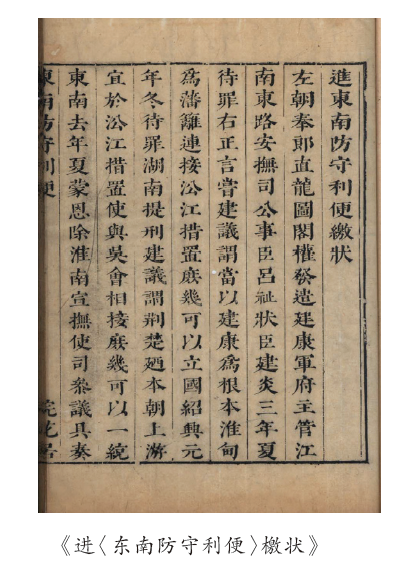 進東南防守利便繳狀
左朝奉郎直龍圖閣權發遣建康軍府主管江
南東路安撫司公事臣呂祉狀臣建炎三年夏
待罪右正言嘗建議謂當以建康爲根本淮甸
爲藩籬連接㳂江措置庶幾可以立國紹興元
年冬待罪湖南提刑建議謂荆楚廼本朝上游
宜於㳂江措置使與吳會相接庶幾可以一統
東南去年夏蒙恩除淮南宣撫使司參議具奏
東南防守利便
浣花居
《进〈东南防守利便〉檄状》